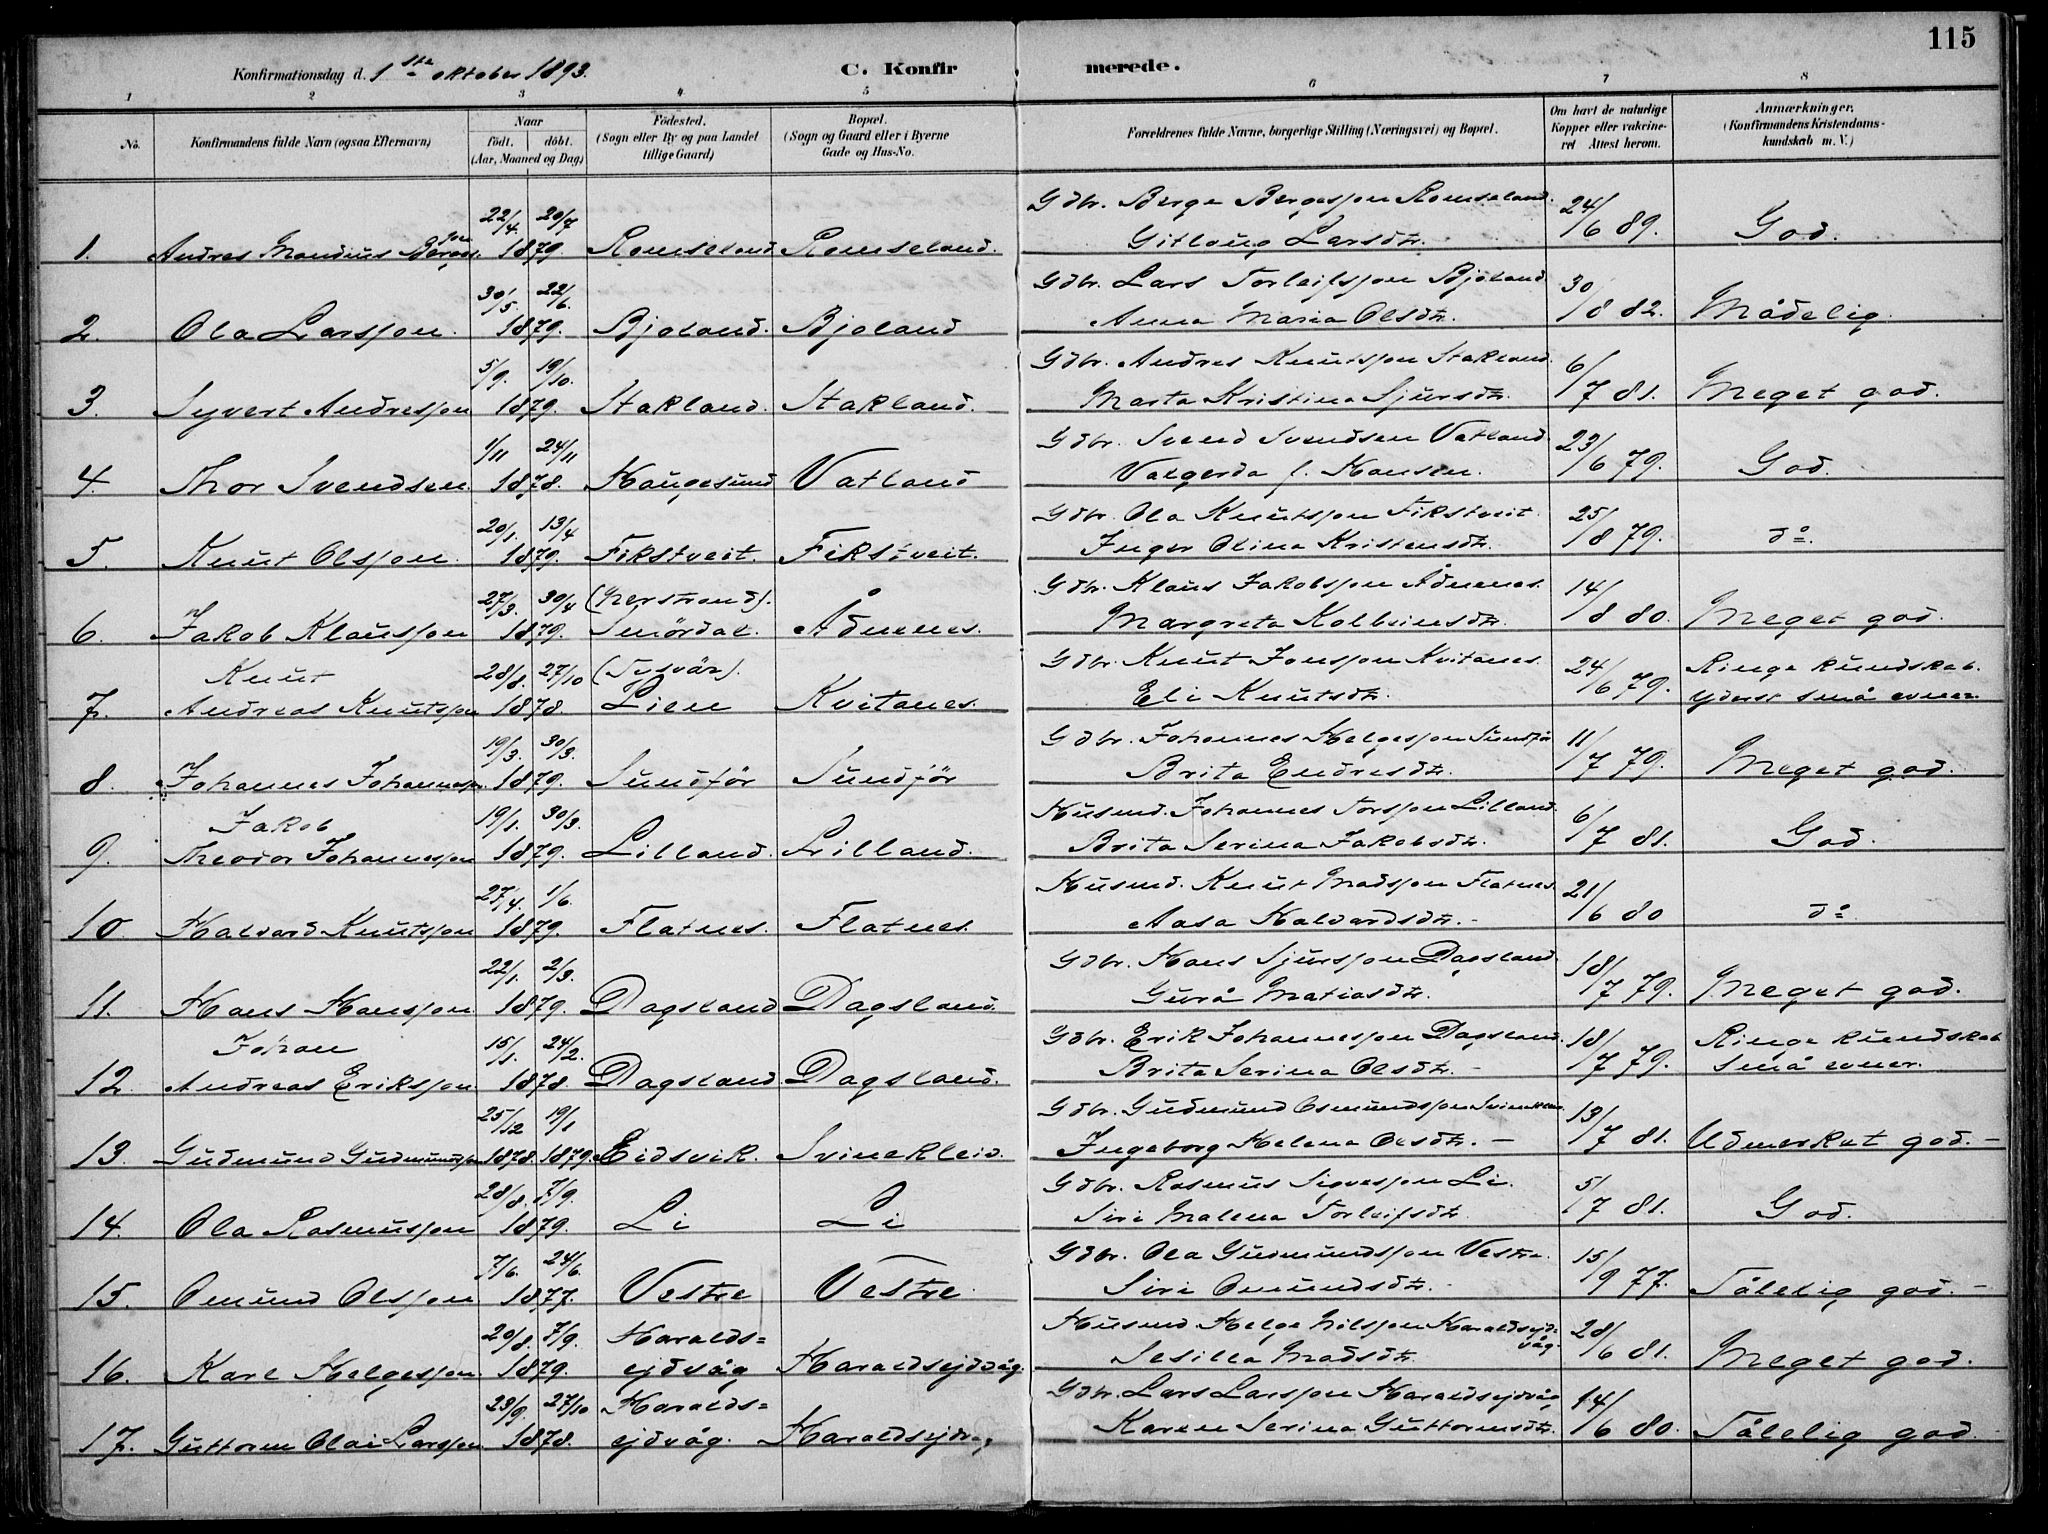 115
Konfirmationsdag d. 1ste oktober 1893. C. Konfirmerede.
1 2 3 4 5 6 7 8
No. Konfirmandens fulde Navn (ogsaa Efternavn) Naar født. døbt. (Aar, Maaned og Dag) Fødested. (Sogn eller By og paa Landet tillige Gaard) Bopæl. (Sogn og Gaard eller i Byerne Gade og Hus-No. Forældrenes fulde Navne, borgerlige Stilling (Næringsvei) og Bopæl. Om havt de naturlige Kopper eller vakcineret Attest herom. Anmærkninger, (Konfirmandens Kristendomskundskab m. V.)
22/4. 20/7 Gdbr. Berge Bergesson Romseland. 24/6 89.
1. Andres Mandius Bergesson 1879. Romseland Romseland. Gitlaug Larsdtr. God.
30/5. 22/6. Gdbr. Lars Torleifsson Bjoland 30/8 82.
2. Ola Larsson. 1879. Bjoland. Bjoland Anna Maria Olsdtr. Mådelig
5/9. 19/10. Gdbr. Andres Knutsson Stakland. 6/7 81.
3. Syvert Andresson 1879. Stakland. Stakland. Marta Kristina Sjursdtr. Meget god.
1/11 24/11 Gdbr. Svend Svendsen Vatland. 23/6 79.
4. Thor Svendsen. 1878. Haugesund Vatland Valgerda f. Hansen. God.
20/1. 13/4 Gdbr. Ola Knutsson Fikstveit. 25/8 79.
5. Knut Olsson. 1879. Fikstveit. Fikstveit. Inger Olina Kristensdtr. do.
27/3. 30/4 (Nerstrand). Gdbr. Klaus Jakobsson Ådnenes. 14/8 80.
6. Jakob Klausson 1879. Smørdal. Ådnenes. Margreta Kolbeinsdtr. Meget god.
Knut 28/8. 27/10 (Tysvær). Gdbr. Knut Jonsson Kvitanes. 24/6 79. Ringe kundskab.
7. Andreas Knutsson 1878. Lien Kvitanes. Eli Knutsdtr. yderst små evner
19/3. 30/3. Gdbr. Johannes Helgesson Sundfør 11/7 79.
8. Johannes Johannesson 1879. Sundfør Sundfør Brita Endresdtr. Meget god.
Jakob 19/1. 30/3. Husmd. Johannes Torsson Lilland. 6/7 81.
9. Theodor Johannesson 1879. Lilland. Lilland. Brita Serina Jakobsdtr. God.
27/4. 1/6. Husmd. Knut Madsson Flatnes. 21/6 80
10. Halvard Knutsson 1879. Flatnes. Flatnes. Aasa Halvardsdtr. - do.
22/1. 2/3. Gdbr. Hans Sjursson Dagsland. 18/7 79.
11. Hans Hansson 1879. Dagsland Dagsland. Gurå Matiasdtr. Meget god.
Johan 15/1. 24/2. Gdbr. Erik Johannesson Dagsland. 18/7 79. Ringe kundskab
12. Andreas Eriksson 1878. Dagsland. Dagsland. Brita Serina Olsdtr. - små evner.
25/12 19/1 Gdbr. Gudmund Osmundsson 13/7 81.
13. Gudmund Gudmundsson 1878. 1879. Eidsvik. Svinekleid. Ingeborg Helena Olsdtr. - Udmerket god. -
28/8. 7/9. Gdbr. Rasmus Sigvesson Li. 5/7 81.
14. Ola Rasmusson 1879. Li Li Siri Malena Torleifsdtr. God.
7/6. 24/6. Gdbr. Ola Gudmundsson Vestre. 15/9 77.
15. Omund Olsson 1877. Vestre Vestre Siri Omundsdtr. - Tålelig god. -
20/8. 7/9. Haralds= Husmd Helge Nilsson Haraldsejdvåg 28/6 81.
16. Karl Helgesson. 1879. ejdvåg Haraldsejdvåg. Sesilla Madsdtr. Meget god.
23/9. 27/10 Haralds= Gdbr. Lars Larsson Haraldsejdvåg 14/6 80.
17. Guttorm Olai Larsson 1878. ejdvåg. Haraldsejdvåg Karen Serina Guttormsdtr. Tålelig god